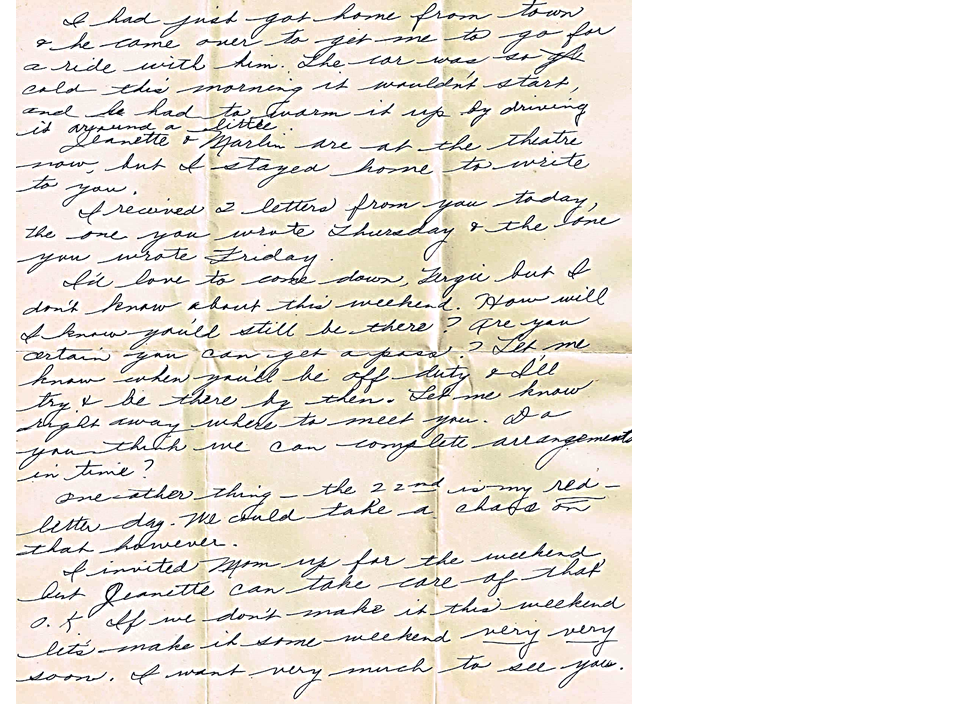 I had just got home from town
& he came over to get me to go for
a ride with him. The car was so
cold this morning it wouldn't start,
and he had to warm it up by driving
it around a little.
Jeanette & Marlin are at the theatre
now, but I stayed home to write
to you.
I received 2 letters from you today,
the one you wrote Thursday & the one
you wrote Friday.
I'd love to come down, but I
don't know about this weekend. How will
I know you'll still be there? Are you
certain you can get a pass? Let me
know when you'll be off duty & I'll
try & be there by then. Let me know
right away where to meet you. Do
you think we can complete arrangements
in time?
One other thing — the 22nd is my red-
letter day. We could take a on
that however.
I invited Mom up for the weekend
but Jeanette can take care of that
O.K. If we don't make it this weekend
let's make it some weekend very very
soon. I want very much to see you.